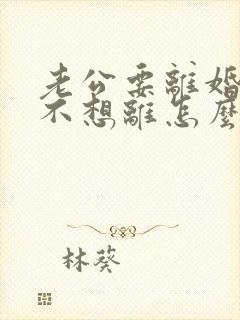 老公要離婚
不想離怎麼
林葵